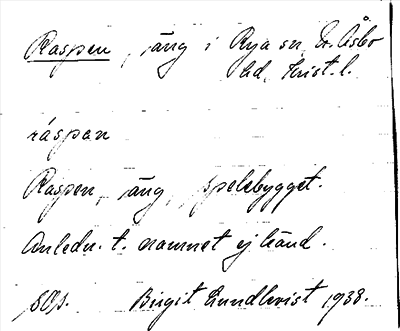 Raspen, äng i Rya sn, N. Åsbo
hd, Krist. l.
ráspan
Raspen, äng, spelebygget.
Anledn. t. namnet ej känd.
Birgit Lundkvist 1938.